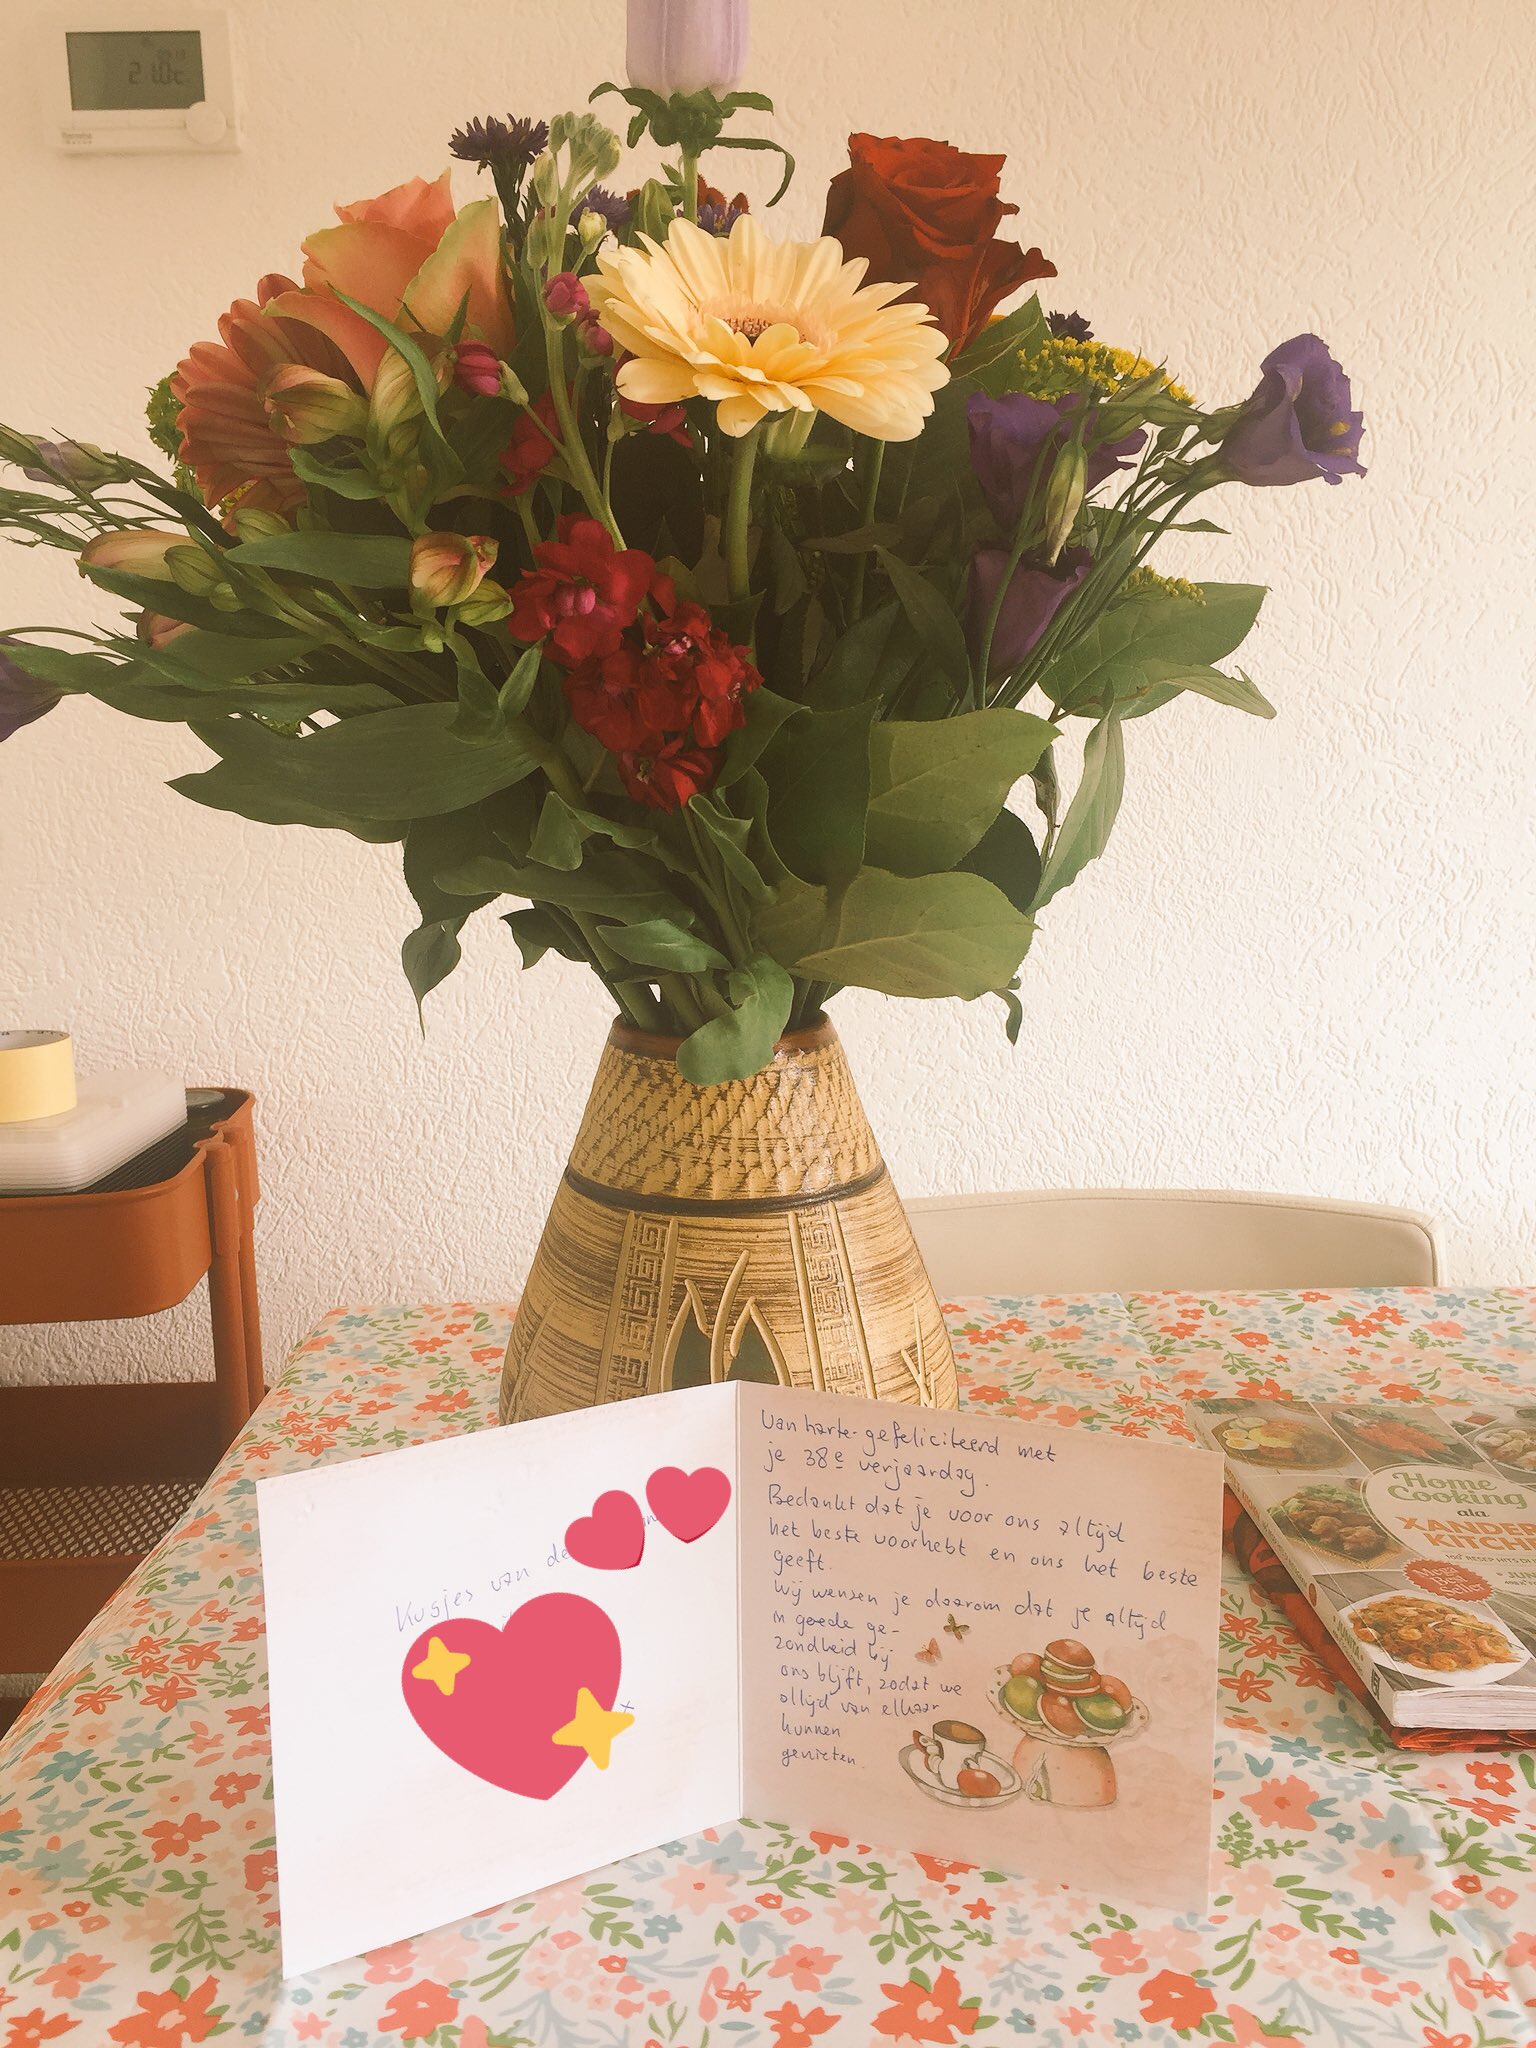 21.0c
Kusjes van de
x
Van harte gefeliciteerd met
je 38e verjaardag.
Bedankt dat je voor ons altijd
het beste voorhebt en ons het beste
geeft.
Wij wensen je daarom dat je altijd
in goede ge-
zondheid bij
ons blijft, zodat we
altijd van elkaar
kunnen
genieten.
Home
Cooking
ala
XANDER
KITCHE
Mega
Best
Seller